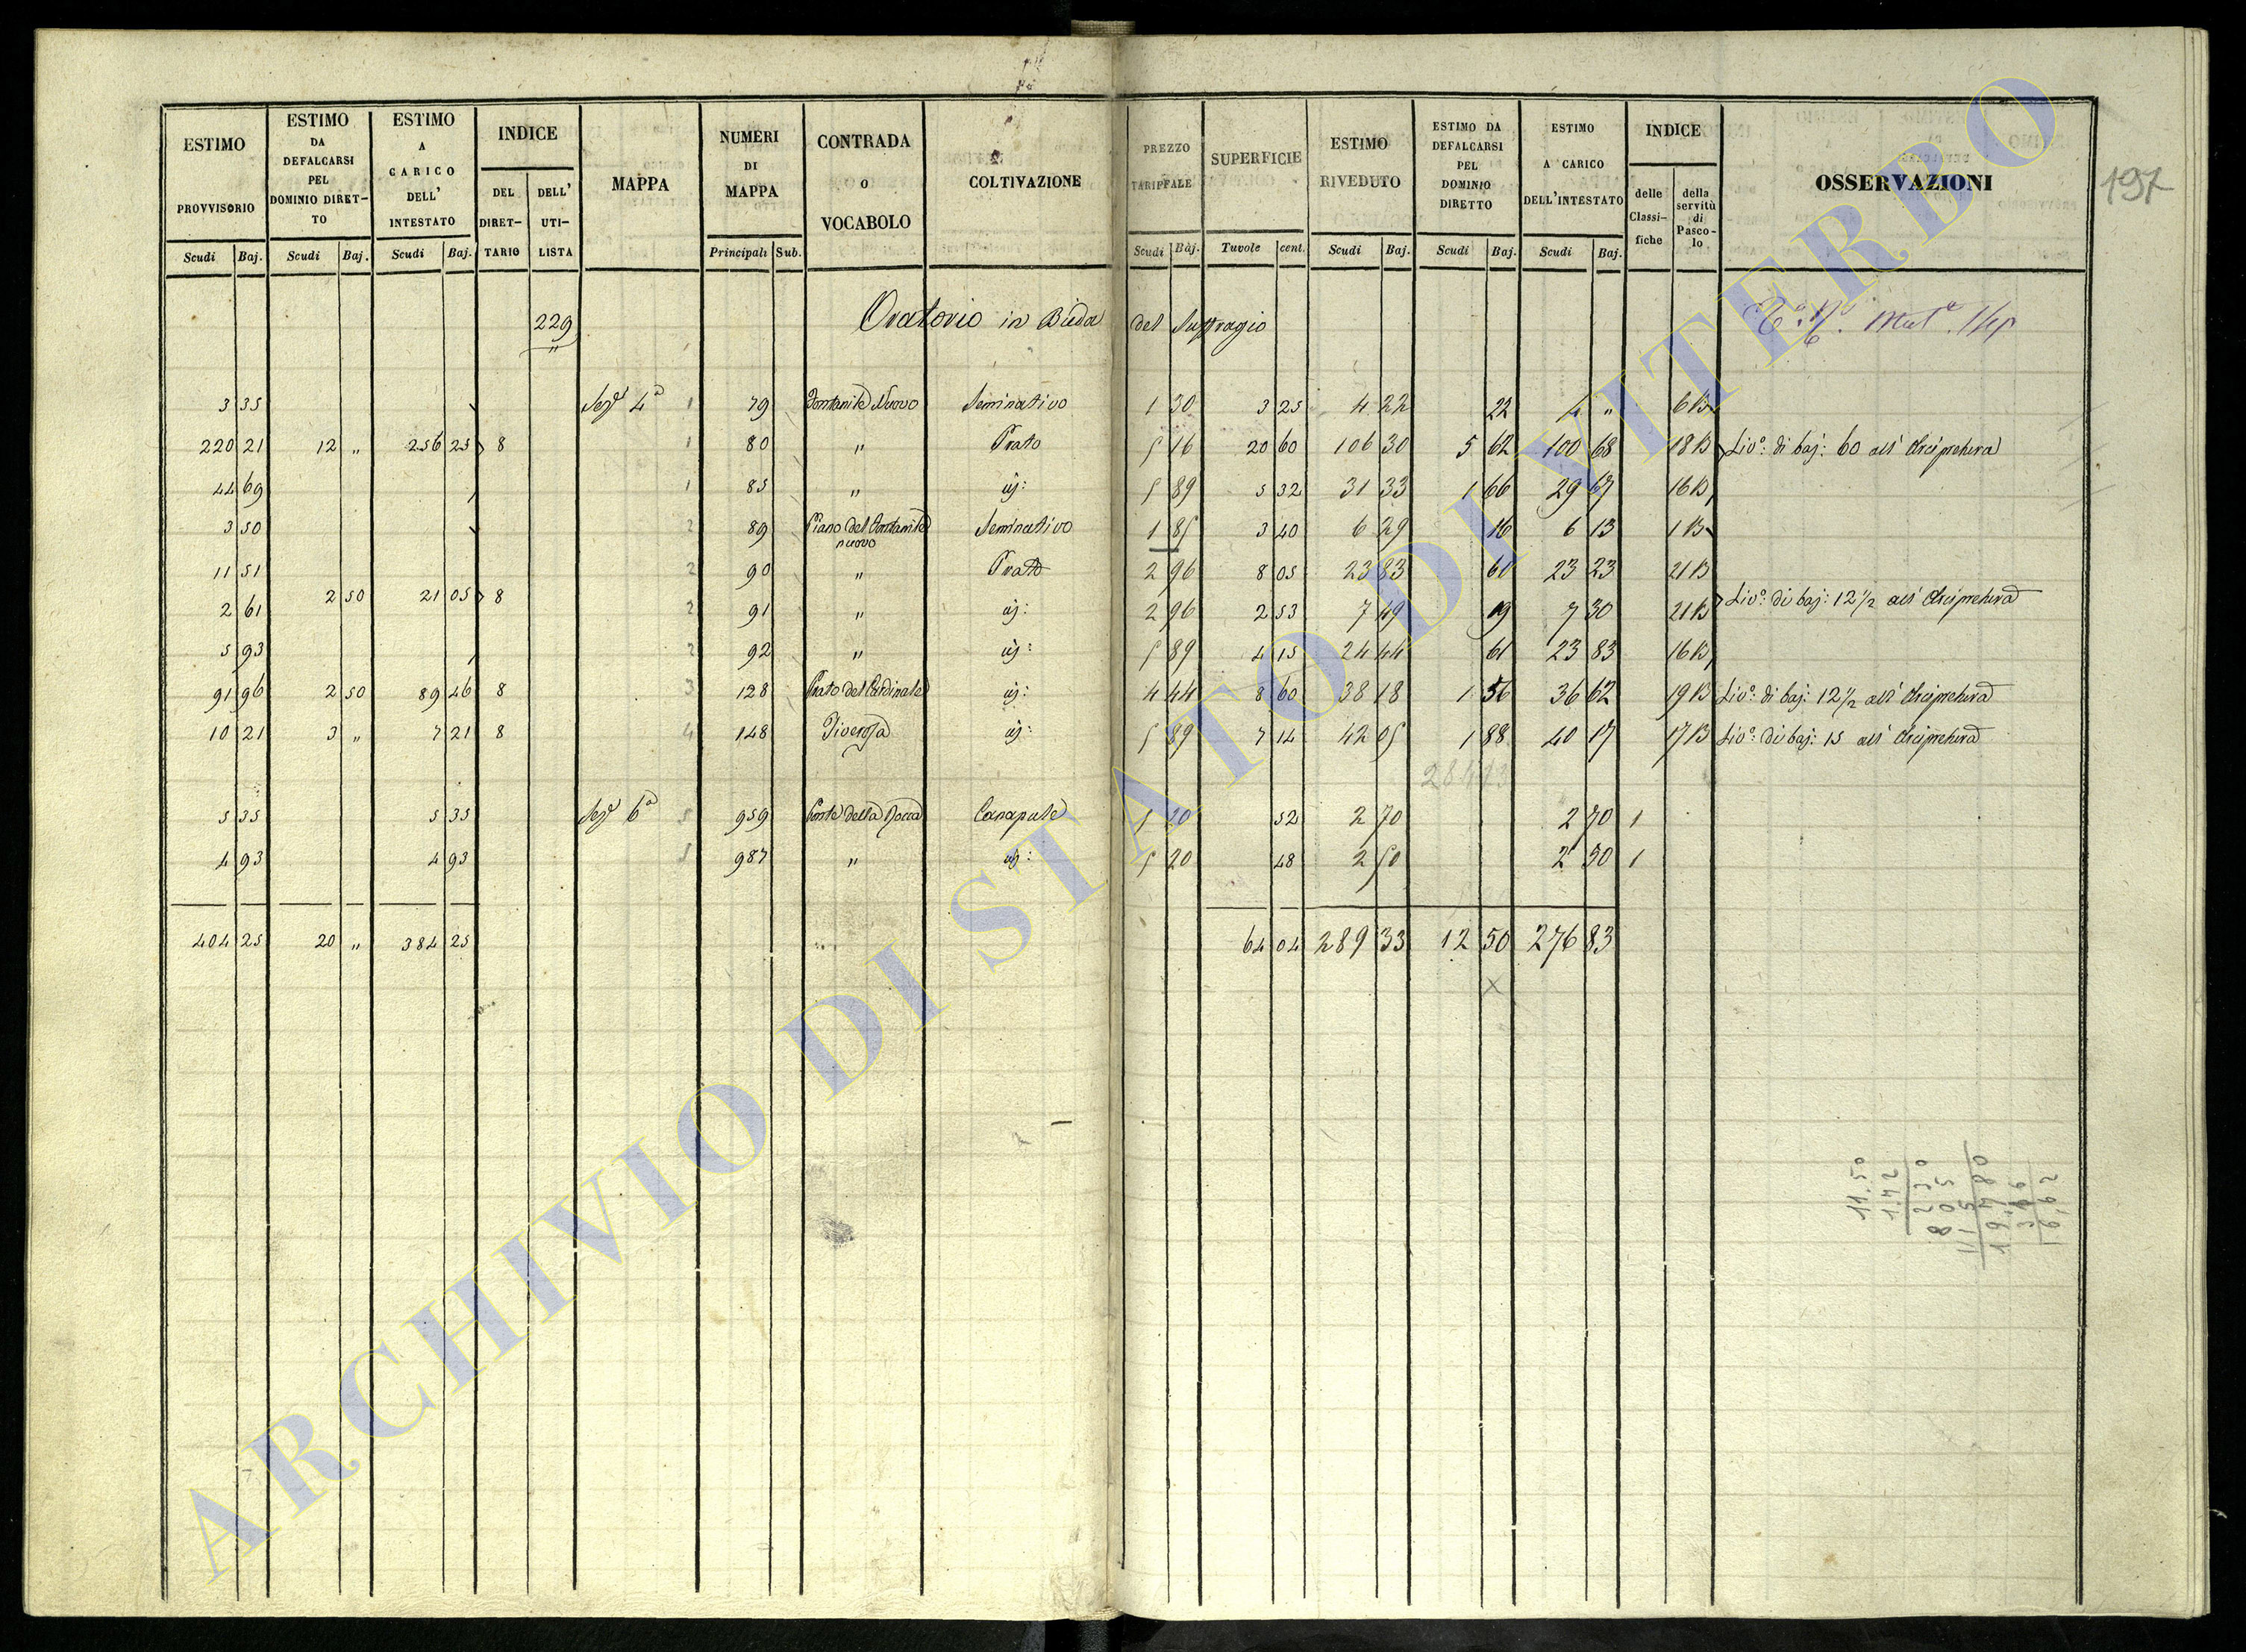 ESTIMO PROVVISORIO Scudi Baj.
ESTIMO DA DEFALCARSI PEL DOMINIO DIRET-TO Scudi Baj.
ESTIMO A CARICO DELL' INTESTATO Scudi Baj.
INDICE DEL DIRET-TARIO DELL' UTI-LISTA
MAPPA
NUMERI DI MAPPA Principali Sub.
CONTRADA O VOCABOLO
COLTIVAZIONE
PREZZO TARIFFALE Scudi Baj.
SUPERFICIE Tuvole cent.
ESTIMO RIVEDUTO Scudi Baj.
ESTIMO DA DEFALCARSI PEL DOMINIO DIRETTO Scudi Baj.
ESTIMO A CARICO DELL'INTESTATO Scudi Baj.
INDICE delle Classi-fiche della servitù di Pasco-lo
OSSERVAZIONI
197
229 Oratorio in Bieda del Suffragio
3 35 Sezᵉ 4ᵃ 1 79 Fontanile Nuovo Seminativo 1 30 3 25 4 22 22 4 " 6 B
220 21 12 " 256 25 8 1 80 " Prato 5 16 20 60 106 30 5 62 100 68 18 B Livᵒ: di baj: 60 all' Arcipretura
44 69 1 85 " id: 5 89 5 32 31 33 1 66 29 67 16 B
3 50 2 89 Piano del Fontanile nuovo Seminativo 1 85 3 40 6 29 16 6 13 1 B
11 51 2 90 " Prato 2 96 8 05 23 83 61 23 23 21 B
2 61 2 50 21 05 8 2 91 " id: 2 96 2 53 7 49 19 7 30 21 B Livᵒ: di baj: 12 ½ all' Arcipretura
5 93 2 92 " id: 5 89 4 15 24 44 61 23 83 16 B
91 96 2 50 89 46 8 3 128 Prato del Cardinale id: 4 44 8 60 38 18 1 56 36 62 19 B Livᵒ: di baj: 12 ½ all' Arcipretura
10 21 3 " 7 21 8 4 148 id: 5 89 7 14 42 05 1 88 40 17 17 B Livᵒ: di baj: 15 all' Arcipretura
5 35 5 35 Sezᵉ 6ᵃ 5 959 Ponte della Rocca Canapule 5 20 52 2 70 2 70 1
4 93 4 93 5 987 " id: 5 20 48 2 50 2 50 1
404 25 20 " 384 25 64 04 289 33 12 50 276 83
x
11.50
1.42
2 30
8 05
1 15
19.780
3 16
16,62
ARCHIVIO DI STATO DI VITERBO